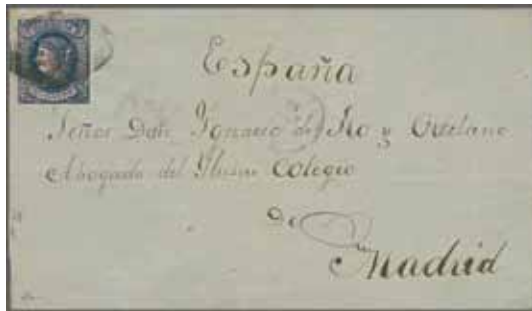 España
Señor Don Ignacio de Ro y
Abogado del Ilustre Colegio
de
Madrid